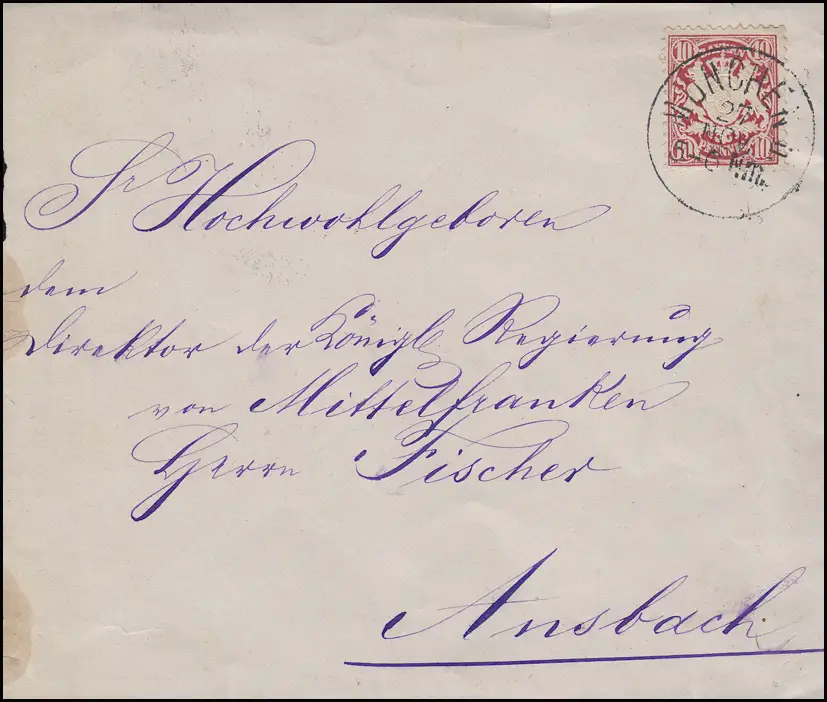 10 10
MÜNCHEN
27
NOV
10 10
Sr Hochwohlgeboren
dem
Direktor der Königl. Regierung
von Mittelfranken
Herrn Fischer
Ansbach